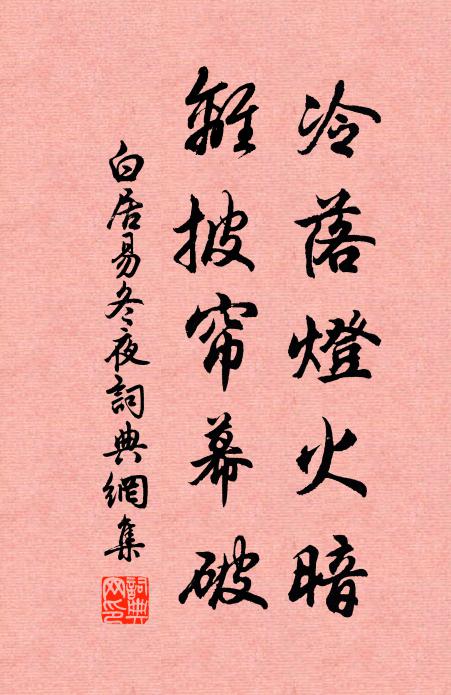 冷落燈火暗
離披帘幕破
白居易冬夜詞典網集
詞典
网印